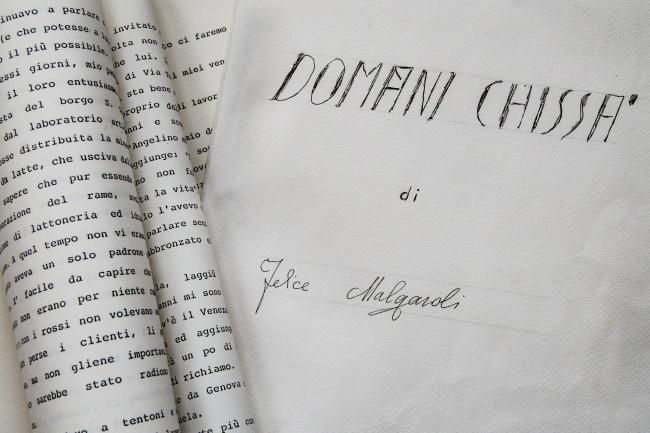 inuavo a parlare
(e che potesse a
o il più possibile.
essi giorni, mio
il loro
sta del borgo S.
dal laboratorio
osse distribuita la
da latte, che usciva
sapere che pur
erazione del rame,
ne di lattoneria ed
A quel tempo non vi
aveva un solo padrone
facile da capire
non erano per niente
con i rossi non volevano
perse i clienti, li
ma non gliene
sarebbe stato
a tentoni
invitato
olta non
che lui.
di via
sta bene
proprio
anni e
Angelino
aggiunge:
no non
ta la
lo l'avevo
parlare
abbronzato e
laggiù
anni mi sono
v'è il
ed
un po di
di richiamo.
da Genova
uela.
te più
to ci faremo
i miei
di
DOMANI CHISSA'
di
Felice Malgaroli